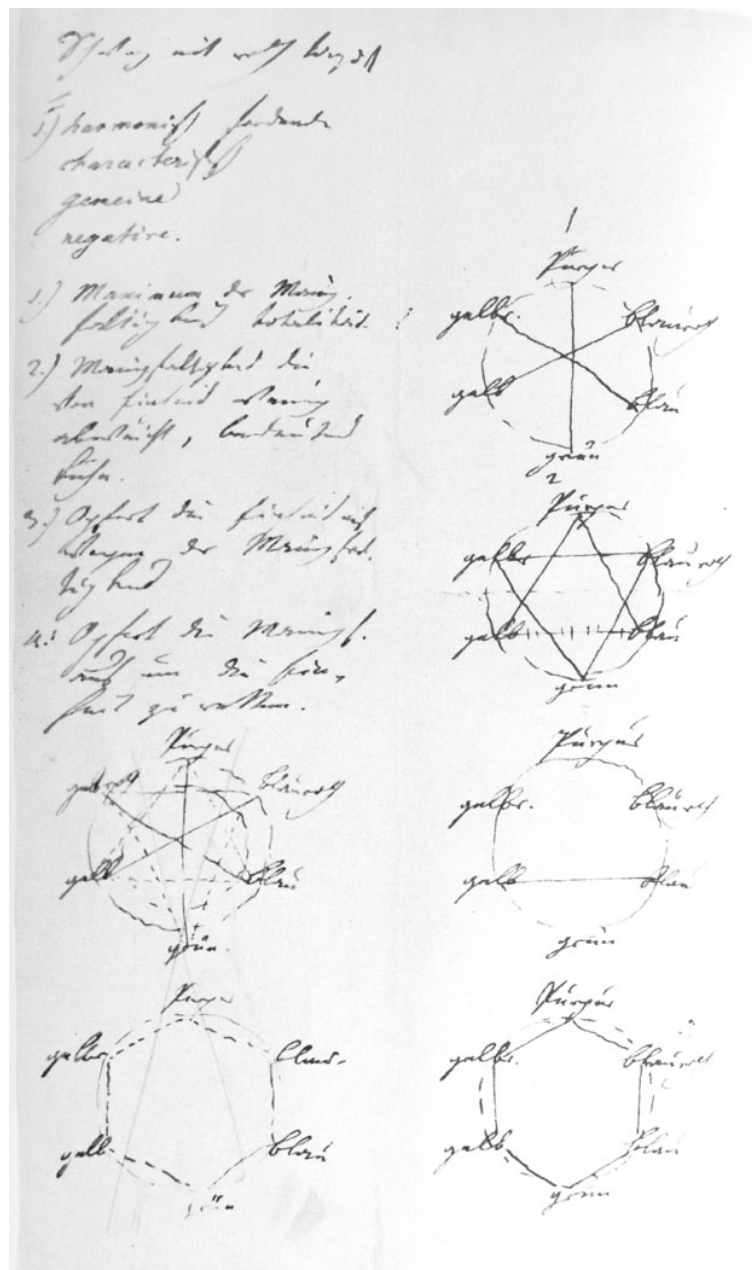 mit
1.) harmonisch
characterisch
gemeine
negative.
1.) Maximum der Mannig-
faltigkeit totalität.
2.) Mannigfaltigkeit die
von Einheit wenig
abweicht, bedeutend
kühn.
3.) Opfert die Einheit auf
wegen der Mannigfal-
tigkeit
4.) Opfert die Mannigf.
auf um die Ein-
heit zu retten.
1
Purpur
gelbr. blauroth
gelb blau
grün
2
Purpur
gelbr. blauroth
gelb blau
grün
Purpur
gelbroth blauroth
gelb blau
grün.
Purpur
gelbr. blauroth
gelb blau
grün
Purpur
gelbr. blau-
gelb blau
grün
Purpur
gelbr. blauroth
gelb blau
grün